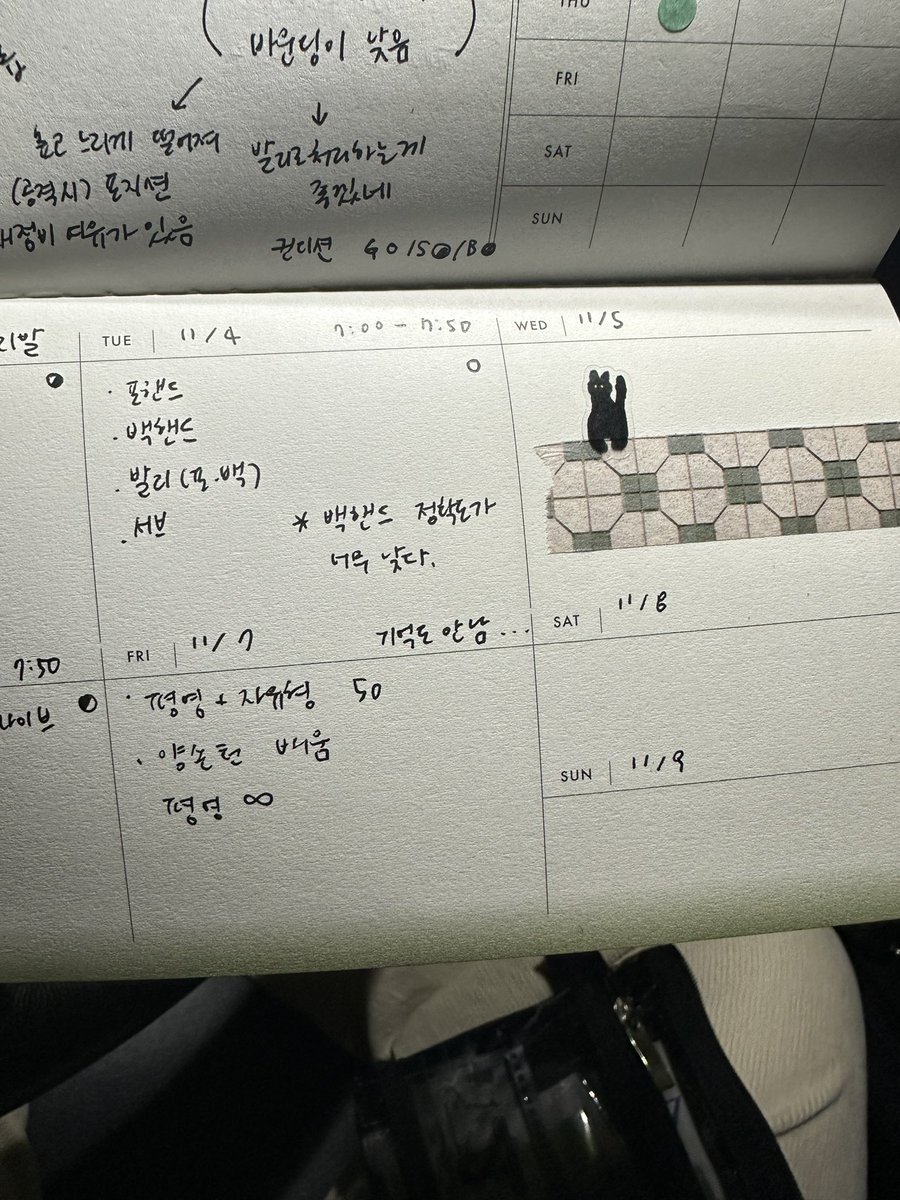 THU
(바운딩이 낮음)
FRI
높고 느리게 떨어져
(공격시) 포지션
재정비 여유가 있음
발리로처리하는게
좋겠네
SAT
SUN
컨디션 GO/SO/BO
리발
TUE 11/4 7:00 - 7:50
WED 11/5
· 포핸드
· 백핸드
· 발리 (포·백)
· 서브
* 백핸드 정확도가
너무 낮다.
7:50
FRI 11/7 기억도 안남...
SAT 11/8
라이브
· 평영 + 자유형 50
· 양손턴 배움
평영 ∞
SUN 11/9